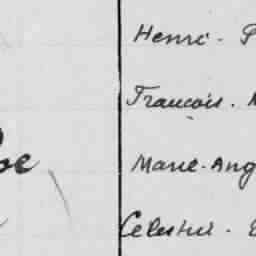 Henri - P
François. M
oe
Marie-Ang
Celestin - E